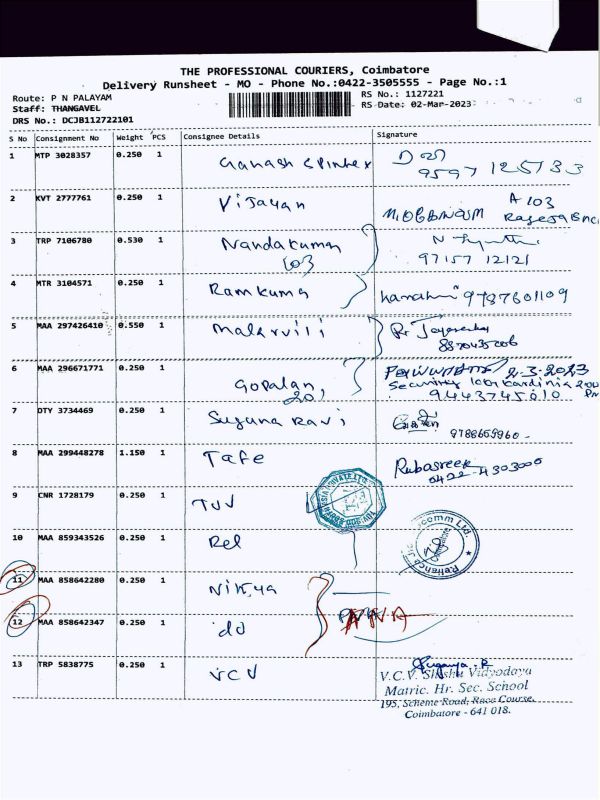 THE PROFESSIONAL COURIERS, Coimbatore
Delivery Runsheet - MO - Phone No.:0422-3505555 - Page No.:1
Route: P N PALAYAM
RS No.: 1127221
Staff: THANGAVEL
RS Date: 02-Mar-2023
DRS No.: DCJB112722101
S No Consignment No Weight PCS Consignee Details Signature
1 MTP 3028357 0.250 1
9597 125133
2 KVT 2777761 0.250 1 Vijayan
A 103
3 TRP 7106780 0.530 1 Nandakumar
103
97157 12121
4 MTR 3104571 0.250 1 Ramkumar
9787601109
5 MAA 297426410 0.550 1 Malarvili
6 MAA 296671771 0.250 1 Gopalan,
201
2-3-2023
Security
9443745010
7 DTY 3734469 0.250 1 Suguna Ravi
9788659960
8 MAA 299448278 1.150 1 Tafe
Rubasree
0422-4303000
9 CNR 1728179 0.250 1 TUV
10 MAA 859343526 0.250 1 Rel
11 MAA 858642280 0.250 1 Nikya
12 MAA 858642347 0.250 1 do
13 TRP 5838775 0.250 1 VCV
Suganya.R
V.C.V. Shishu Vidyodaya
Matric. Hr. Sec. School
195, Scheme Road, Race Course,
Coimbatore - 641 018.